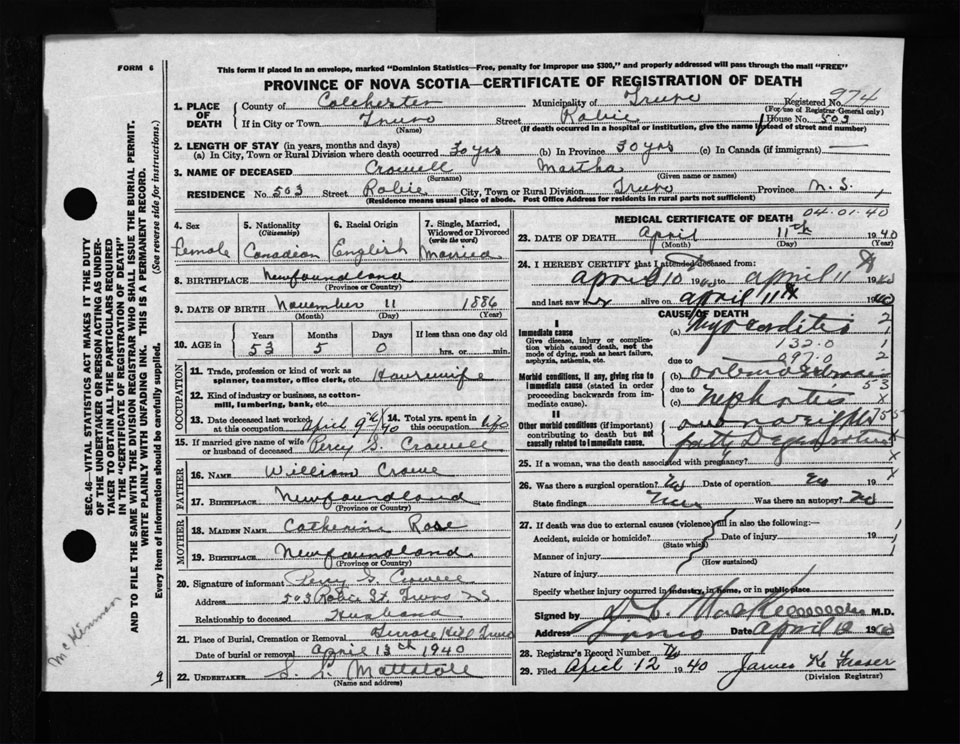 FORM 6
This form if placed in an envelope, marked "Dominion Statistics—Free, penalty for improper use $300," and properly addressed will pass through the mail "FREE"
PROVINCE OF NOVA SCOTIA—CERTIFICATE OF REGISTRATION OF DEATH
1. PLACE OF DEATH County of Colchester Municipality of Truro Registered No. 974
(For use of Registrar General only)
If in City or Town Truro (Name) Street Robie House No. 503
(If death occurred in a hospital or institution, give the name instead of street and number)
2. LENGTH OF STAY (in years, months and days)
(a) In City, Town or Rural Division where death occurred 30 yrs (b) In Province 30 yrs (c) In Canada (if immigrant) —
3. NAME OF DECEASED Crowell Martha
(Surname) (Given name or names)
RESIDENCE No. 503 Street Robie City, Town or Rural Division Truro Province N.S.
(Residence means usual place of abode. Post Office Address for residents in rural parts not sufficient)
4. Sex Female
5. Nationality (Citizenship) Canadian
6. Racial Origin English
7. Single, Married, Widowed or Divorced (write the word) Married
8. BIRTHPLACE Newfoundland
(Province or Country)
9. DATE OF BIRTH November 11 1886
(Month) (Day) (Year)
10. AGE in Years 53 Months 5 Days 0 If less than one day old hrs. or min.
OCCUPATION
11. Trade, profession or kind of work as spinner, teamster, office clerk, etc. Housewife
12. Kind of industry or business, as cotton-mill, lumbering, bank, etc.
13. Date deceased last worked at this occupation April 9th/40
14. Total yrs. spent in this occupation life
15. If married give name of wife or husband of deceased Percy S. Crowell
FATHER
16. NAME William Crowe
17. BIRTHPLACE Newfoundland
(Province or Country)
MOTHER
18. MAIDEN NAME Catherine Rose
19. BIRTHPLACE Newfoundland
(Province or Country)
20. Signature of informant Percy S. Crowell
Address 503 Robie St. Truro NS
Relationship to deceased Husband
21. Place of Burial, Cremation or Removal Terrace Hill Truro
Date of burial or removal April 13th 1940
22. UNDERTAKER
(Name and address)
MEDICAL CERTIFICATE OF DEATH
04.01.40
23. DATE OF DEATH April 11th 1940
(Month) (Day) (Year)
24. I HEREBY CERTIFY that I attended deceased from:
April 10 1940 to April 11 1940
and last saw her alive on April 11th 1940
CAUSE OF DEATH
I
Immediate cause
Give disease, injury or complication which caused death, not the mode of dying, such as heart failure, asphyxia, asthenia, etc.
(a) Myocarditis
132.0
097.0
due to
Morbid conditions, if any, giving rise to immediate cause (stated in order proceeding backwards from immediate cause).
(b)
due to
(c) Nephritis
II
Other morbid conditions (if important) contributing to death but not causally related to immediate cause.
fatty Degeneration
25. If a woman, was the death associated with pregnancy?
26. Was there a surgical operation? No Date of operation No
State findings Was there an autopsy? No
27. If death was due to external causes (violence) fill in also the following:—
Accident, suicide or homicide? (State which) Date of injury 19
Manner of injury
(How sustained)
Nature of injury
Specify whether injury occurred in industry, in home, or in public place
Signed by M.D.
Address Truro Date April 12 1940
28. Registrar's Record Number
29. Filed April 12 1940 James K. Fraser
(Division Registrar)
SEC. 46—VITAL STATISTICS ACT MAKES IT THE DUTY
OF THE UNDERTAKER OR PERSON ACTING AS UNDERTAKER
TO OBTAIN ALL THE PARTICULARS REQUIRED
IN THE "CERTIFICATE OF REGISTRATION OF DEATH"
AND TO FILE THE SAME WITH THE DIVISION REGISTRAR WHO SHALL ISSUE THE BURIAL PERMIT.
WRITE PLAINLY WITH UNFADING INK. THIS IS A PERMANENT RECORD.
Every item of information should be carefully supplied. (See reverse side for instructions.)
McKinnon
9